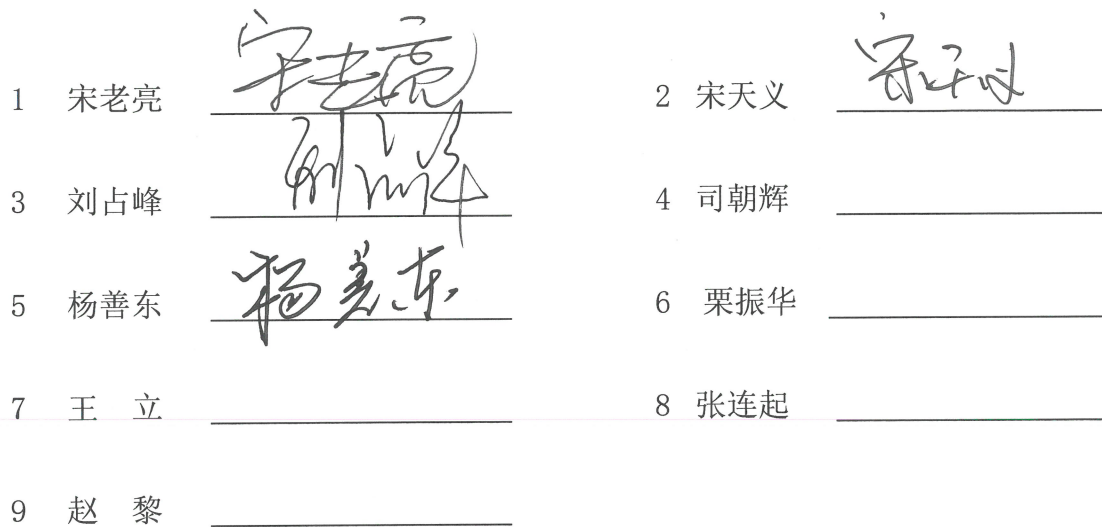 1 宋老亮 宋老亮 2 宋天义 宋天义
3 刘占峰 刘占峰 4 司朝辉
5 杨善东 杨善东 6 栗振华
7 王 立 8 张连起
9 赵 黎